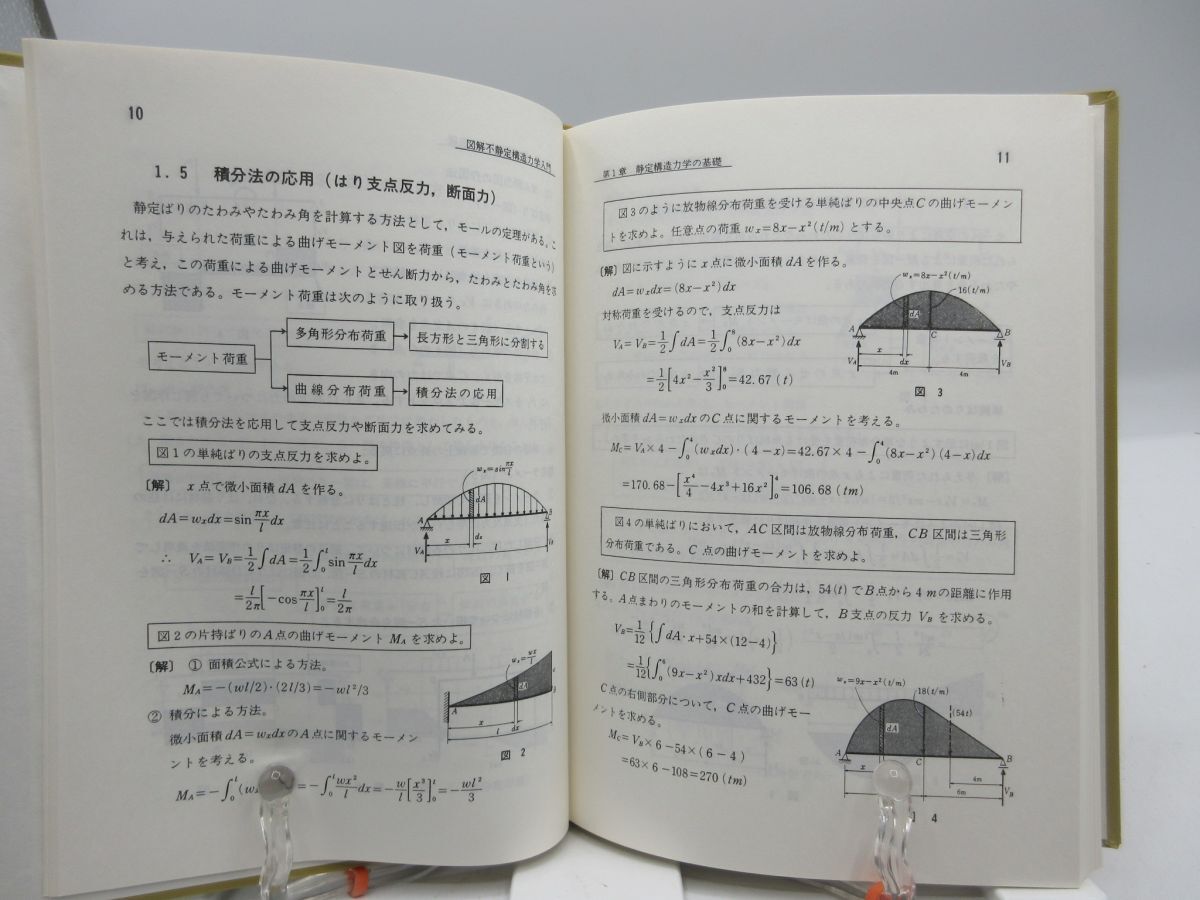 10
図解不静定構造力学入門
1.5 積分法の応用(はり支点反力,断面力)
静定ばりのたわみやたわみ角を計算する方法として,モールの定理がある。こ
れは,与えられた荷重による曲げモーメント図を荷重(モーメント荷重という)
と考え,この荷重による曲げモーメントとせん断力から,たわみとたわみ角を求
める方法である。モーメント荷重は次のように取り扱う。
モーメント荷重
多角形分布荷重
長方形と三角形に分割する
曲線分布荷重
積分法の応用
ここでは積分法を応用して支点反力や断面力を求めてみる。
図1の単純ばりの支点反力を求めよ。
〔解〕 x点で微小面積dAを作る。
dA=wₓdx=sin πx/l dx
∴ V_A=V_B=1/2∫dA=1/2∫₀ˡ sin πx/l dx
=l/2π[−cos πx/l]₀ˡ=l/2π
wₓ=sin πx/l
dA
A
B
x
dx
l
V_A
図 1
図2の片持ばりのA点の曲げモーメント M_A を求めよ。
〔解〕 ① 面積公式による方法。
M_A=−(wl/2)・(2l/3)=−wl²/3
② 積分による方法。
微小面積 dA=wₓdxのA点に関するモーメン
トを考える。
M_A=−∫₀ˡ(w =−∫₀ˡ wx²/l dx=−w/l[x³/3]₀ˡ=−wl²/3
wₓ=wx/l
dA
A
x
dx
l
図 2
第1章 静定構造力学の基礎
11
図3のように放物線分布荷重を受ける単純ばりの中央点Cの曲げモーメン
トを求めよ。任意点の荷重 wₓ=8x−x²(t/m) とする。
〔解〕図に示すようにx点に微小面積dAを作る。
dA=wₓdx=(8x−x²)dx
対称荷重を受けるので,支点反力は
V_A=V_B=1/2∫dA=1/2∫₀⁸(8x−x²)dx
=1/2[4x²−x³/3]₀⁸=42.67 (t)
wₓ=8x−x²(t/m)
16(t/m)
dA
A
C
B
x
dx
V_A
V_B
4m
4m
図 3
微小面積 dA=wₓdxのC点に関するモーメントを考える。
M_C=V_A×4−∫₀⁴(wₓdx)・(4−x)=42.67×4−∫₀⁴(8x−x²)(4−x)dx
=170.68−[x⁴/4−4x³+16x²]₀⁴=106.68 (tm)
図4の単純ばりにおいて,AC区間は放物線分布荷重,CB区間は三角形
分布荷重である。C点の曲げモーメントを求めよ。
〔解〕CB区間の三角形分布荷重の合力は,54(t)でB点から4mの距離に作用
する。A点まわりのモーメントの和を計算して,B支点の反力 V_B を求める。
V_B=1/12{∫dA・x+54×(12−4)}
=1/12{∫₀⁶(9x−x²)xdx+432}=63(t)
C点の右側部分について,C点の曲げモー
メントを求める。
M_C=V_B×6−54×(6−4)
=63×6−108=270 (tm)
wₓ=9x−x²(t/m)
18(t/m)
(54t)
dA
A
C
B
x
4m
6m
V_B
4